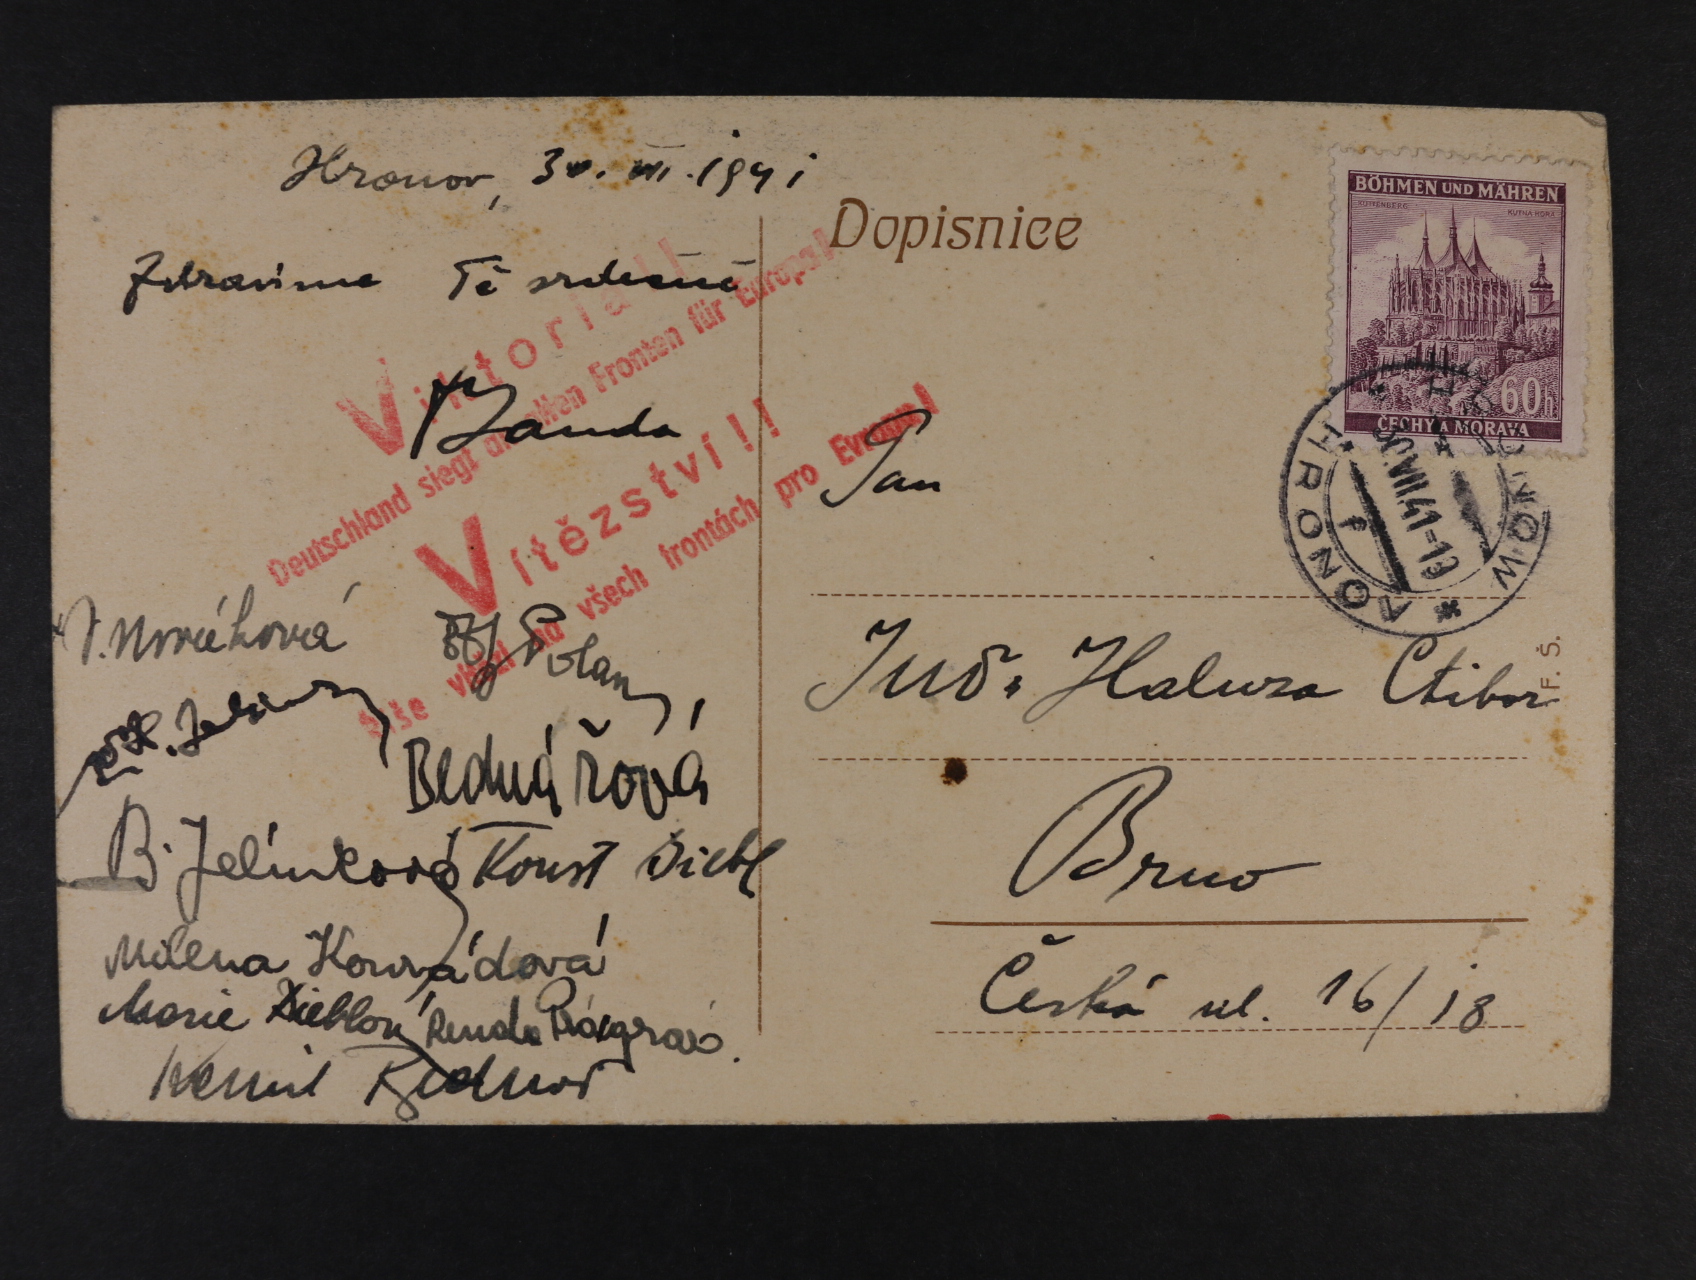 Hronov, 30. VII. 1941
Zdravíme Tě srdečně
Banda
Viktoria!!
Deutschland siegt an allen Fronten für Europa!
Vítězství!!
říše vítězí na všech frontách pro Evropu!
Nováková
Polan
Bednářová
B. Jelínková Konst Biebl
Milena Konrádová
Marie Bieblová Renda
Bednář
Dopisnice
BÖHMEN UND MÄHREN
KUTTENBERG KUTNÁ HORA
60h
ČECHY A MORAVA
HRONOW
30.VII.41-13
HRONOV 1
f
Pan
JUDr Haluza Ctibor
Brno
Česká ul. 16/18
F. Š.